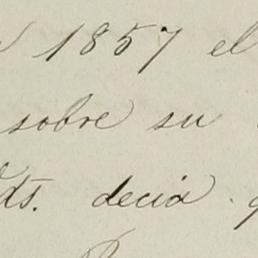 1857 el
sobre su
Vds. decia